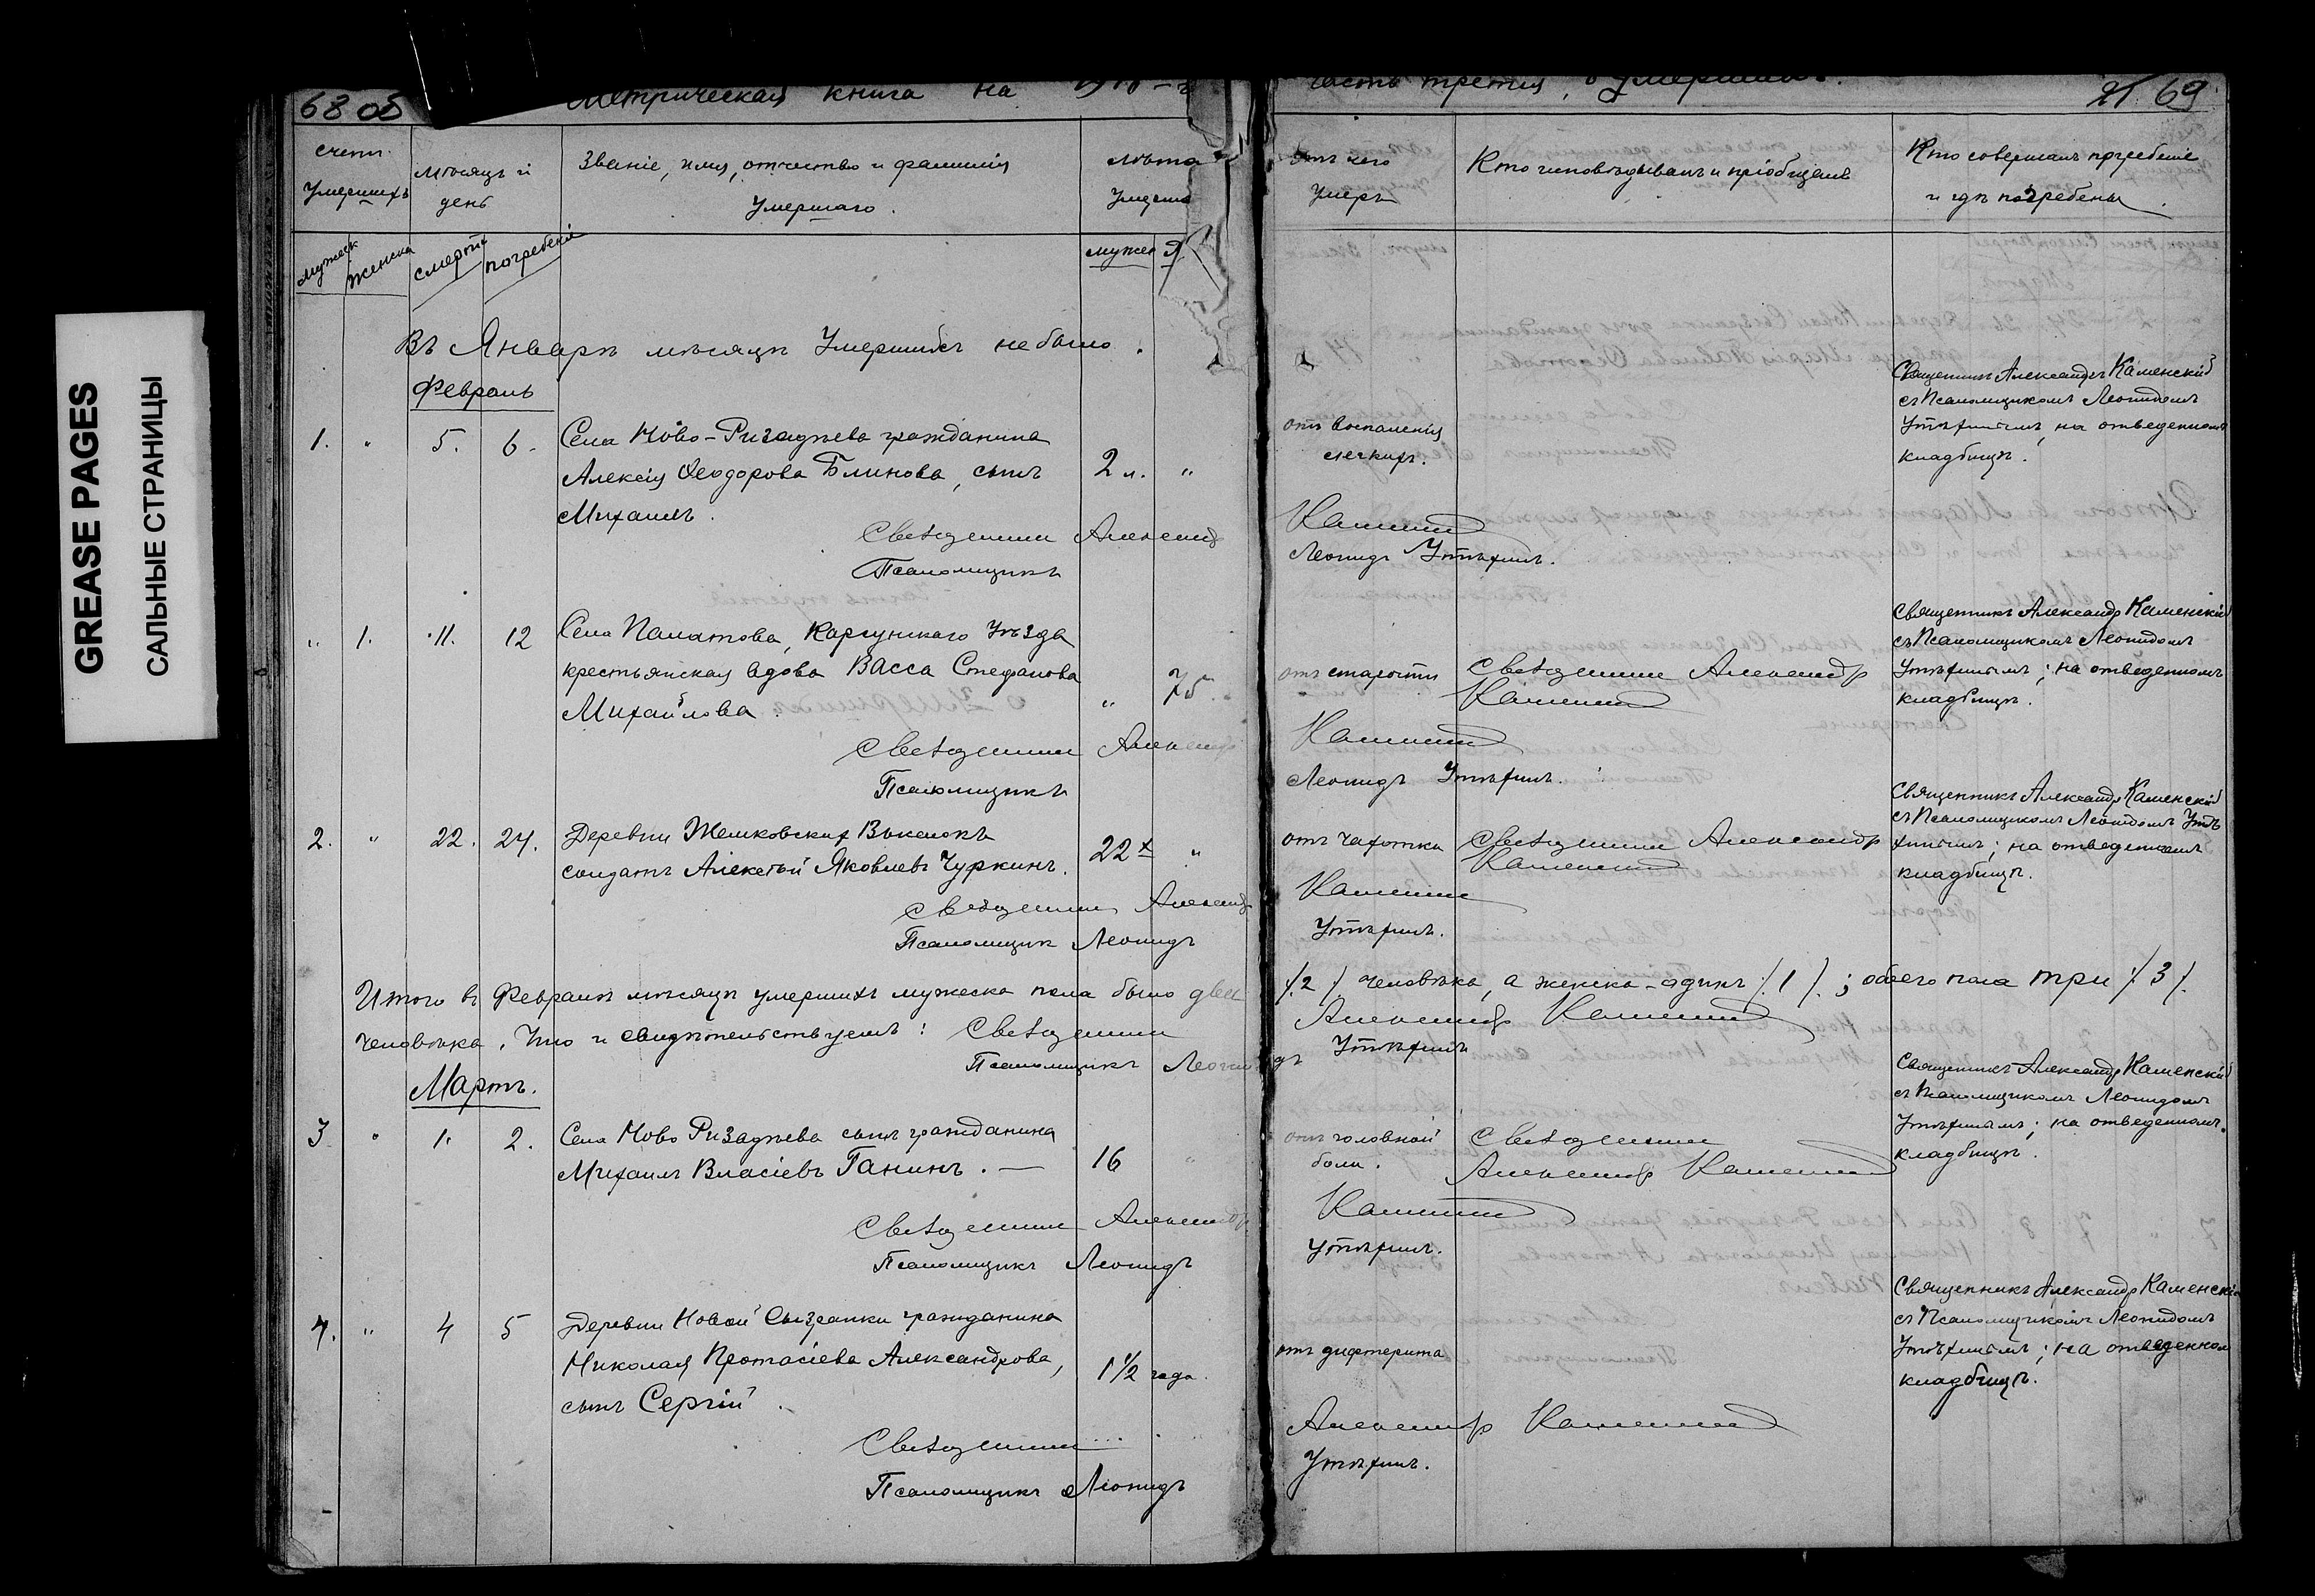 GREASE PAGES
САЛЬНЫЕ СТРАНИЦЫ
68 об
Метрическая книга на
часть третия, о умерших.
21 69
счетъ умершихъ
мѣсяцъ и день
Званіе, имя, отчество и фамилія умершаго.
лѣта
отъ чего умеръ
Кто исповѣдывалъ и пріобщалъ
Кто совершалъ погребеніе и гдѣ погребены
мужеск
женска
смерти
погребенія
мужес
Въ Январѣ мѣсяцѣ Умершихъ не было.
Февраль
1. " 5. 6.
Села Ново-Ризадѣева гражданина
Алексія Ѳеодорова Блинова, сынъ
Михаилъ.
2 л. "
отъ воспаленія
легкихъ.
Священникъ Александръ Каменскій
съ Псаломщикомъ Леонидомъ
Утѣхинымъ, на отведенномъ
кладбищѣ.
Священникъ Александръ Каменскій
Псаломщикъ Леонидъ Утѣхинъ.
" 1. 11. 12
Села Палатова, Карсунскаго Уѣзда
крестьянская вдова Васса Стефанова
Михайлова.
" 75.
отъ старости
Священникъ Александръ
Каменскій
Священникъ Александръ Каменскій
съ Псаломщикомъ Леонидомъ
Утѣхинымъ; на отведенномъ
кладбищѣ.
Священникъ Александръ Каменскій
Псаломщикъ Леонидъ Утѣхинъ.
2. " 22. 24.
Деревни Жемковскихъ Выселокъ
солдатъ Алексѣй Яковлевъ Чуркинъ.
22 "
отъ чахотки
Священникъ Александръ
Каменскій
Священникъ Александръ Каменскій
съ Псаломщикомъ Леонидомъ Утѣ
хинымъ; на отведенномъ
кладбищѣ.
Священникъ Александръ Каменскій
Псаломщикъ Леонидъ Утѣхинъ.
Итого въ Февралѣ мѣсяцѣ умершихъ мужеска пола было два /.2/ человѣка, а женска - одинъ /.1/.; обоего пола три /.3/.
человѣка. Что и свидѣтельствуемъ: Священникъ Александръ Каменскій
Псаломщикъ Леонидъ Утѣхинъ
Мартъ.
3 " 1. 2.
Села Ново Ризадѣева сынъ гражданина
Михаилъ Власіевъ Ганинъ. —
16 "
отъ головной
боли.
Священникъ
Александръ Каменскій
Священникъ Александръ Каменскій
съ Псаломщикомъ Леонидомъ
Утѣхинымъ; на отведенномъ
кладбищѣ.
Священникъ Александръ Каменскій
Псаломщикъ Леонидъ Утѣхинъ.
4. " 4 5
Деревни Новой Сызранки гражданина
Николая Протасіева Александрова,
сынъ Сергій.
1 1/2 года.
отъ дифтерита
Священникъ Александръ Каменскій
съ Псаломщикомъ Леонидомъ
Утѣхинымъ; на отведенном
кладбищѣ.
Священникъ Александръ Каменскій
Псаломщикъ Леонидъ Утѣхинъ.